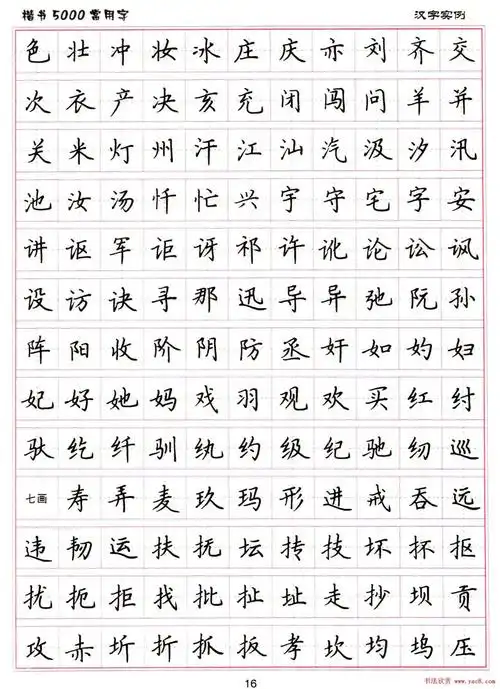 楷书5000常用字 汉字实例
色壮冲妆冰庄庆亦刘齐交
次衣产决亥充闭闯问羊并
关米灯州汗江汕汽汲汐汛
池汝汤忏忙兴宇守宅字安
讲讴军讵讶祁许讹论讼讽
设访诀寻那迅导异弛阮孙
阵阳收阶阴防丞奸如妁妇
妃好她妈戏羽观欢买红纣
驮纥纤驯纨约级纪驰纫巡
七画 寿弄麦玖玛形进戒吞远
违韧运扶抚坛抟技坏抔抠
扰扼拒找批扯址走抄坝贡
攻赤圻折抓扳孝坎均坞压
16
书法欣赏 www.yac8.com